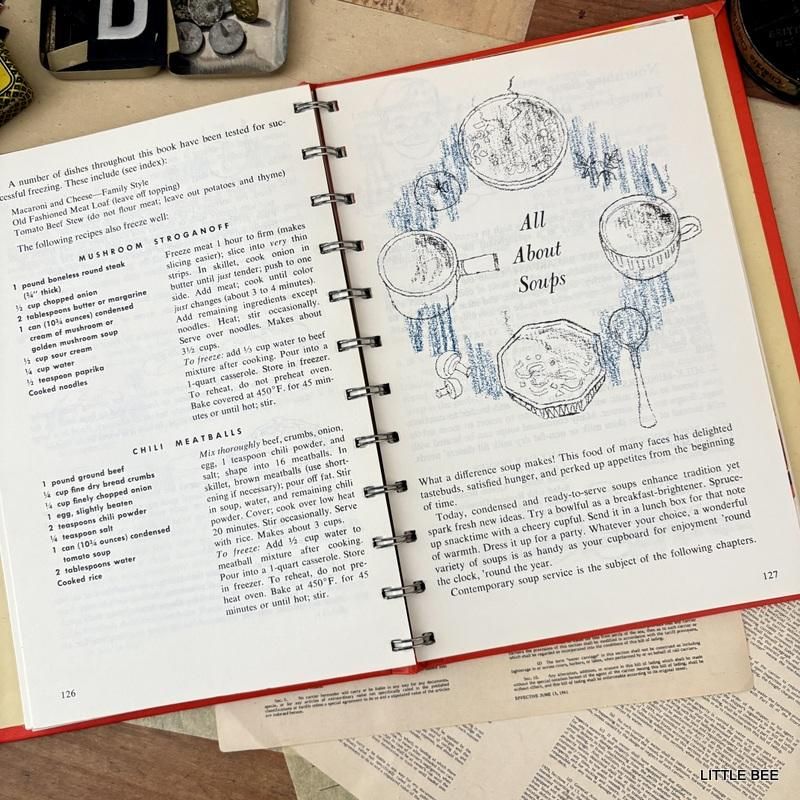 A number of dishes throughout this book have been tested for suc-
cessful freezing. These include (see index):
Macaroni and Cheese—Family Style
Old Fashioned Meat Loaf (leave off topping)
Tomato Beef Stew (do not flour meat; leave out potatoes and thyme)
The following recipes also freeze well:
MUSHROOM STROGANOFF
1 pound boneless round steak
(¾" thick)
½ cup chopped onion
2 tablespoons butter or margarine
1 can (10¾ ounces) condensed
cream of mushroom or
golden mushroom soup
½ cup sour cream
¼ cup water
½ teaspoon paprika
Cooked noodles
Freeze meat 1 hour to firm (makes
slicing easier); slice into very thin
strips. In skillet, cook onion in
butter until just tender; push to one
side. Add meat; cook until color
just changes (about 3 to 4 minutes).
Add remaining ingredients except
noodles. Heat; stir occasionally.
Serve over noodles. Makes about
3½ cups.
To freeze: add ⅓ cup water to beef
mixture after cooking. Pour into a
1-quart casserole. Store in freezer.
To reheat, do not preheat oven.
Bake covered at 450°F. for 45 min-
utes or until hot; stir.
CHILI MEATBALLS
1 pound ground beef
¼ cup fine dry bread crumbs
¼ cup finely chopped onion
1 egg, slightly beaten
2 teaspoons chili powder
¼ teaspoon salt
1 can (10¾ ounces) condensed
tomato soup
2 tablespoons water
Cooked rice
Mix thoroughly beef, crumbs, onion,
egg, 1 teaspoon chili powder, and
salt; shape into 16 meatballs. In
skillet, brown meatballs (use short-
ening if necessary); pour off fat. Stir
in soup, water, and remaining chili
powder. Cover; cook over low heat
20 minutes. Stir occasionally. Serve
with rice. Makes about 3 cups.
To freeze: Add ½ cup water to
meatball mixture after cooking.
Pour into a 1-quart casserole. Store
in freezer. To reheat, do not pre-
heat oven. Bake at 450°F. for 45
minutes or until hot; stir.
126
All
About
Soups
What a difference soup makes! This food of many faces has delighted
tastebuds, satisfied hunger, and perked up appetites from the beginning
of time.
Today, condensed and ready-to-serve soups enhance tradition yet
spark fresh new ideas. Try a bowlful as a breakfast-brightener. Spruce-
up snacktime with a cheery cupful. Send it in a lunch box for that note
of warmth. Dress it up for a party. Whatever your choice, a wonderful
variety of soups is as handy as your cupboard for enjoyment 'round
the clock, 'round the year.
Contemporary soup service is the subject of the following chapters.
127
EFFECTIVE JUNE 15, 1941
LITTLE BEE